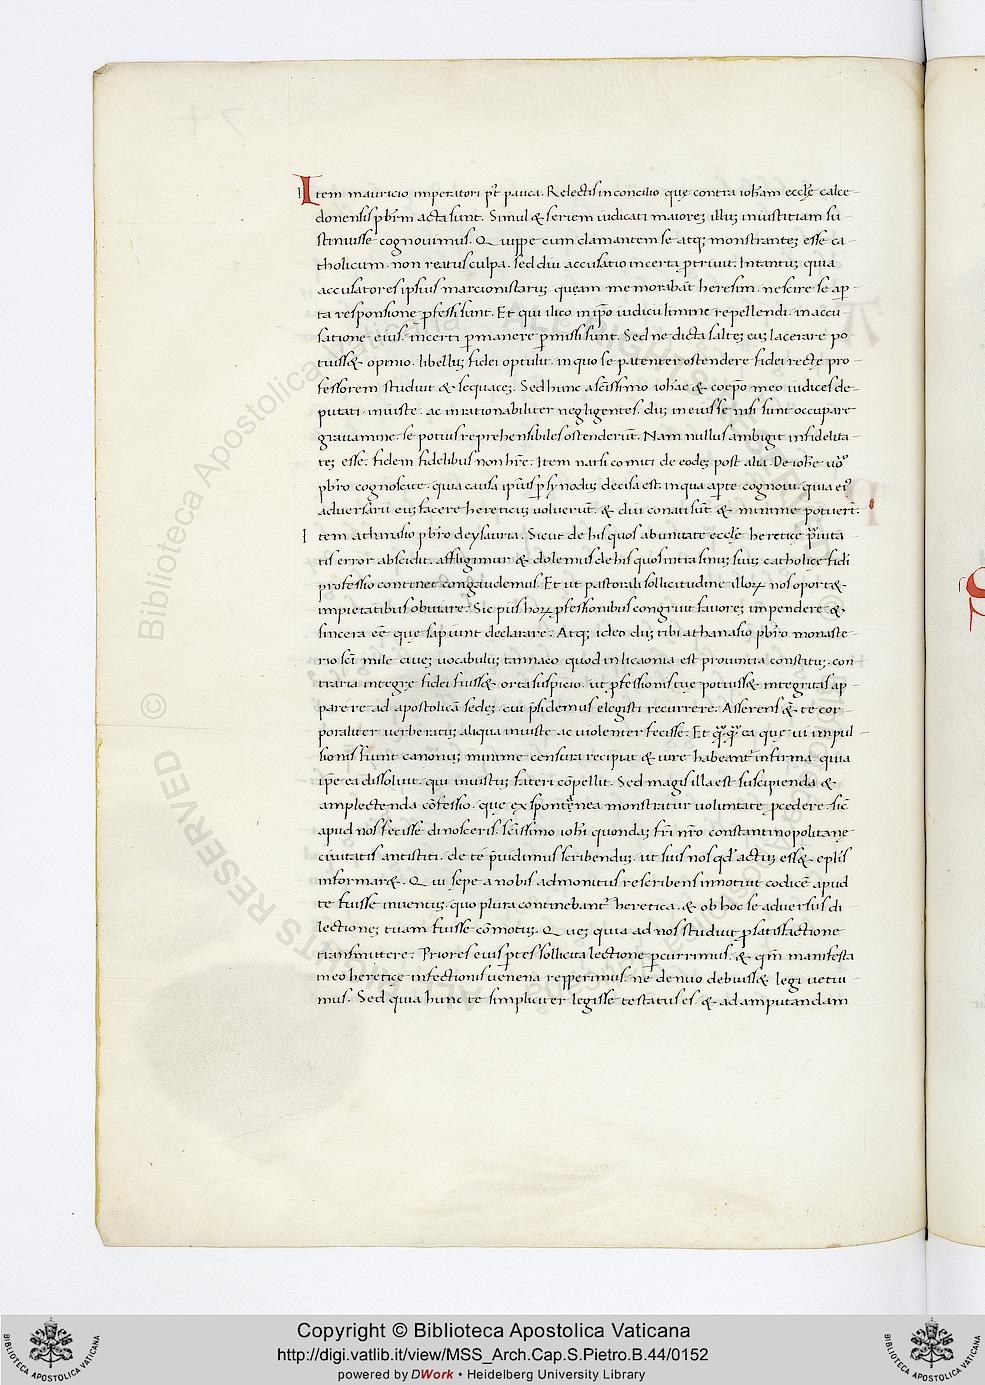 Item mauricio imperatori pt̄ pauca. Relectis in concilio quę contra ioh̄am eccl̄ę calce-
donensis pb̄rm acta sunt. Simul & seriem iudicati maiorę illiꝰ iniustitiam su-
stinuisse cognouimus. Quippe cum clamantem se atq; monstrantē esse ca-
tholicum. non reatus culpa. sed diu accusatio incerta ꝑtriuit. Intantū quia
accusatores ipsius marcionistarū quęam memorabāt heresim. nescire se aper-
ta responsione ꝓfessi sunt. Et qui ilico in ip̄o iudicii limine repellendi. in accu-
satione eius. incerti ꝑmanere ꝑmissi sunt. Sed ne dicta saltē eiꝰ lacerare po-
tuiss& opinio. libellū fidei optulit. in quo se patenter ostendere fidei recte pro-
fessorem studuit & sequacē. Sed hunc a sc̄issimo ioh̄ae & coep̄o meo iudices de-
putati. iniuste. ac inrationabiliter negligentes. dū in eū esse nisi sunt occupare
grauamine. se potius reprehensibiles ostenderūt. Nam nullus ambigit infidelita-
tē esse. fidem fidelibus non hr̄e. Item narsi comiti de eodē post alia. De ioh̄e ūo
pb̄ro cognoscite. quia causa ipsius ꝑ synodū decisa est. in qua aperte cognoui. quia eiꝰ
aduersarii eū facere hereticū uoluerūt. & diu conati sūt. & minime potuerūt.
Item athanasio pb̄ro de ysauria. Sicut de his quos ab unitate eccl̄ę heretice prauita-
tis error abscidit. affligimur & dolemus de his quos intra sinū suū catholice fidi
professio continet congaudemus. Et ut pastorali sollicitudine illoꝝ nos oport&
impietatibus obuiare. Sic piis hoꝝ ꝓfessionibus congruit fauorē impendere &
sincera eē que sapiunt declarare. Atq; ideo dū tibi athanasio pb̄ro monaste-
rio sc̄i mile cuiꝰ uocabulū tannaco quod in licaonia est prouintia constitutū. con-
traria integrę fidei fuiss& orta suspicio. ut ꝓfessionis tuę potuiss& integritas ap-
parere ad apostolicā sedē. cui p̄sidemus elegisti recurrere. Asserens & te cor-
poraliter uerberatū aliqua iniuste ac uiolenter fecisse. Et quāquā ea que ui impul-
sionis fiunt canonū minime censura recipiat & iure habeantʳ infirma. quia
ip̄e ea dissoluit. qui iniustū fateri cōpellit. Sed magis illa est suscipienda &
amplectenda cōfessio. que ex spontanea monstratur uoluntate ꝓcedere. sic̄
apud nos fecisse dinosceris. sc̄issimo ioh̄i quondā fr̄i nr̄o constantinopolitanę
ciuitatis antistiti. de te p̄uidimus scribendū. ut suis nos qd̓ actū ess& ep̄lis
informar&. Qui sepe a nobis admonitus rescribens innotuit codicē apud
te fuisse inuentū. quo plura continebantʳ heretica. & ob hoc se aduersus di-
lectionē tuam fuisse cōmotū. Quē quia ad nos studuit ꝓ satisfactione
transmittere. Priores eius ꝑtes sollicita lectione ꝑcurrimus. & qm̄ manifesta
in eo hereticę infectionis uenena repperimus. ne denuo debuiss& legi uetui-
mus. Sed quia hunc te simpliciter legisse testatus es. & ad amputandam
© Biblioteca Apostolica Vaticana
ALL RIGHTS RESERVED
Copyright © Biblioteca Apostolica Vaticana
http://digi.vatlib.it/view/MSS_Arch.Cap.S.Pietro.B.44/0152
powered by DWork • Heidelberg University Library